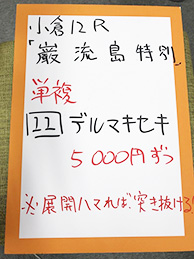 小倉12R
「巌流島特別」
単複
11 デルマキセキ
5000円ずつ
※展開ハマれば、突き抜ける!